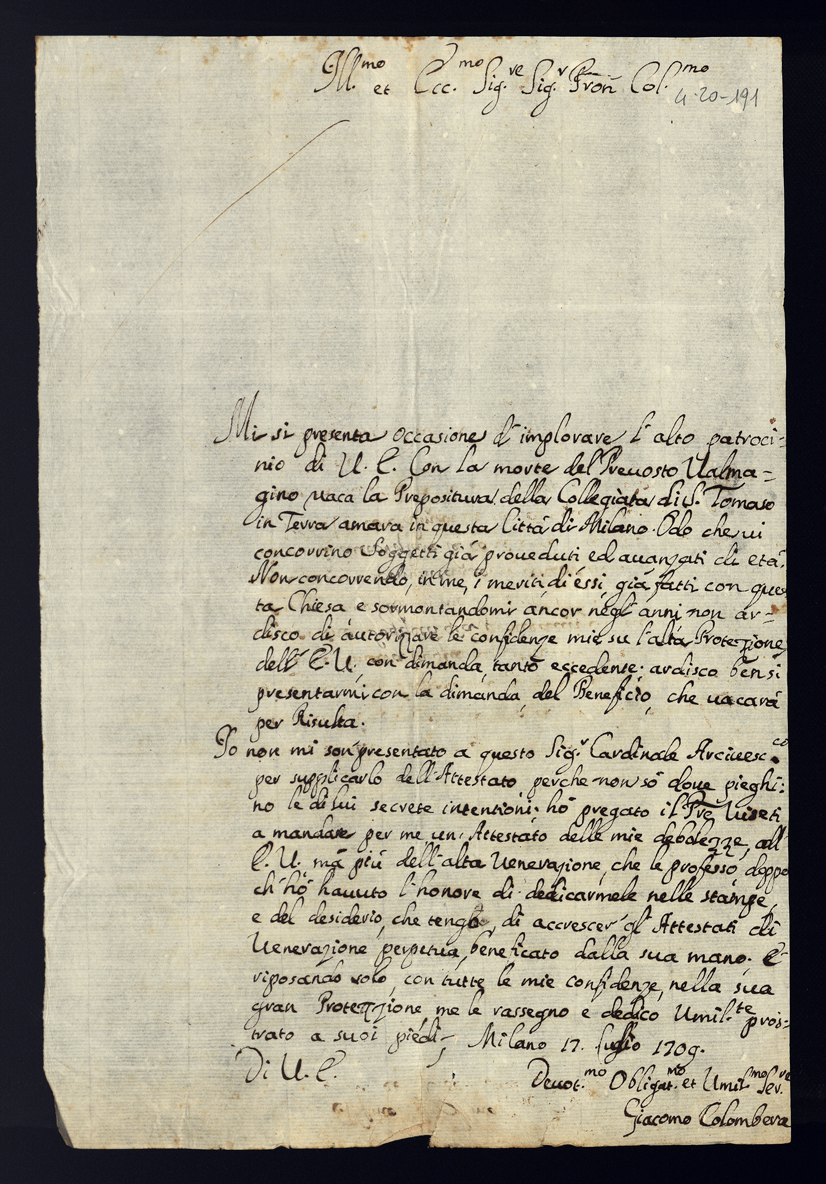 Ill.mo et Ecc.mo Sig.re Sig.r Pron Col.mo
4-20-191
Mi si presenta occasione d'implorare l'alto patroci-
nio di V. E. Con la morte del Prevosto Valma=
gino vaca la Prepositura della Collegiata di S. Tomaso
in Terra amara in questa Città di Milano. Odo che vi
concorrino Soggetti già proveduti ed avanzati di età.
Non concorrendo, in me, i meriti di essi, già fatti con ques
ta Chiesa e sormontandomi ancor negl'anni non ar=
disco di autorizzare le confidenze mie su l'alta Protezzione
dell'E. V. con dimanda tanto eccedente: ardisco bensi
presentarmi con la dimanda del Beneficio, che vacarà
per Risulta.
Io non mi son presentato a questo Sig.r Cardinale Arcivesc.co
per supplicarlo dell'Attestato, perche non sò dove pieghi:
no le di lui secrete intentioni: hò pregato il Pre
a mandare per me un' Attestato delle mie debolezze, all'
E. V. mà più dell'alta Venerazione, che le professo, doppo
ch'hò havuto l'honore di dedicarmele nelle stampe,
e del desiderio, che tengo, di accrescer gl'Attestati di
Venerazione perpetua, beneficato dalla sua mano. E
riposando solo, con tutte le mie confidenze, nella sua
gran Protezzione, me le rassegno e dedico Umil.te pros=
trato a suoi piedi. Milano 17. Luglio 1709.
Di V. E.
Devot.mo Obligat.mo et Umil.mo Ser.re
Giacomo Colombera